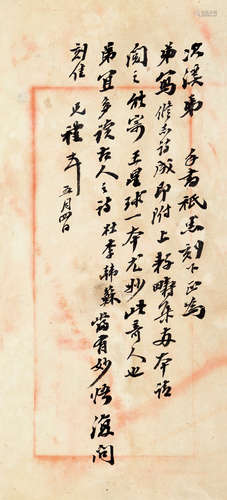 次溪弟 手書祇悉刻下正為
弟寫修志詩成即附上 集每本請
閱之能寄王星球一本尤妙此奇人也
弟宜多讀古人之詩杜李韓蘇當有妙悟復問
刻佳 兄禮 五月四日